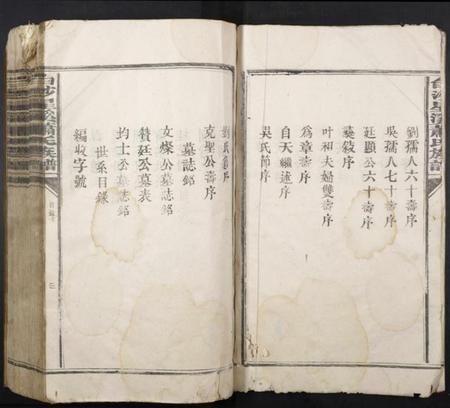 劉孺人六十壽序
吳孺人七十壽序
廷顯公六十壽序
義敍序
叶和夫婦雙壽序
爲章壽序
自天繼述序
吳氏節序
劉氏節序
克聖公壽序
墓誌
文燦公墓誌銘
公墓表
均士公墓誌銘
世系目錄
編收字號
蕭氏族譜